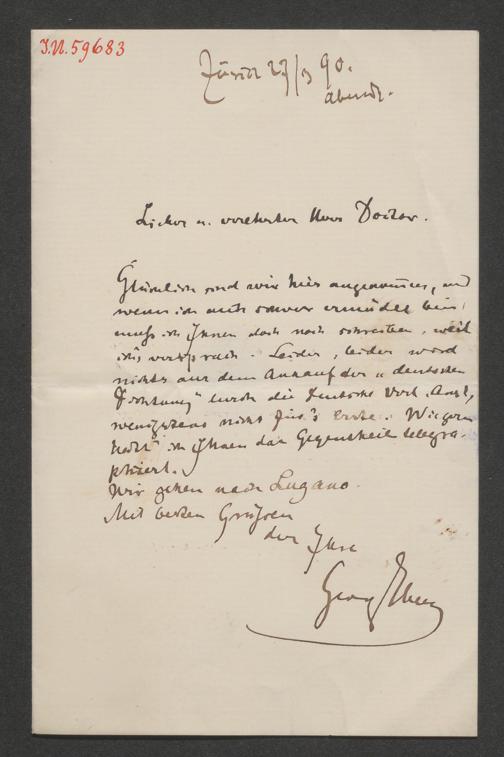 J.N. 59683
Zürich 27/3 90.
abends.
Lieber u. verehrter Herr Doctor.
Glücklich sind wir hier angekommen, und
wenn ich auch schwer ermüdet bin,
muß ich Ihnen doch noch schreiben, weil
ich's versprach. Leider, leider wird
nichts aus dem Ankauf der „deutschen
Dichtung" durch die Deutsche Verl. Anst,
wenigstens nicht für's Erste. Wie gern
hätt' ich Ihnen das Gegentheil telegra-
phiert.
Wir gehen nach Lugano.
Mit besten Grüßen
der Ihre
Georg Ebers